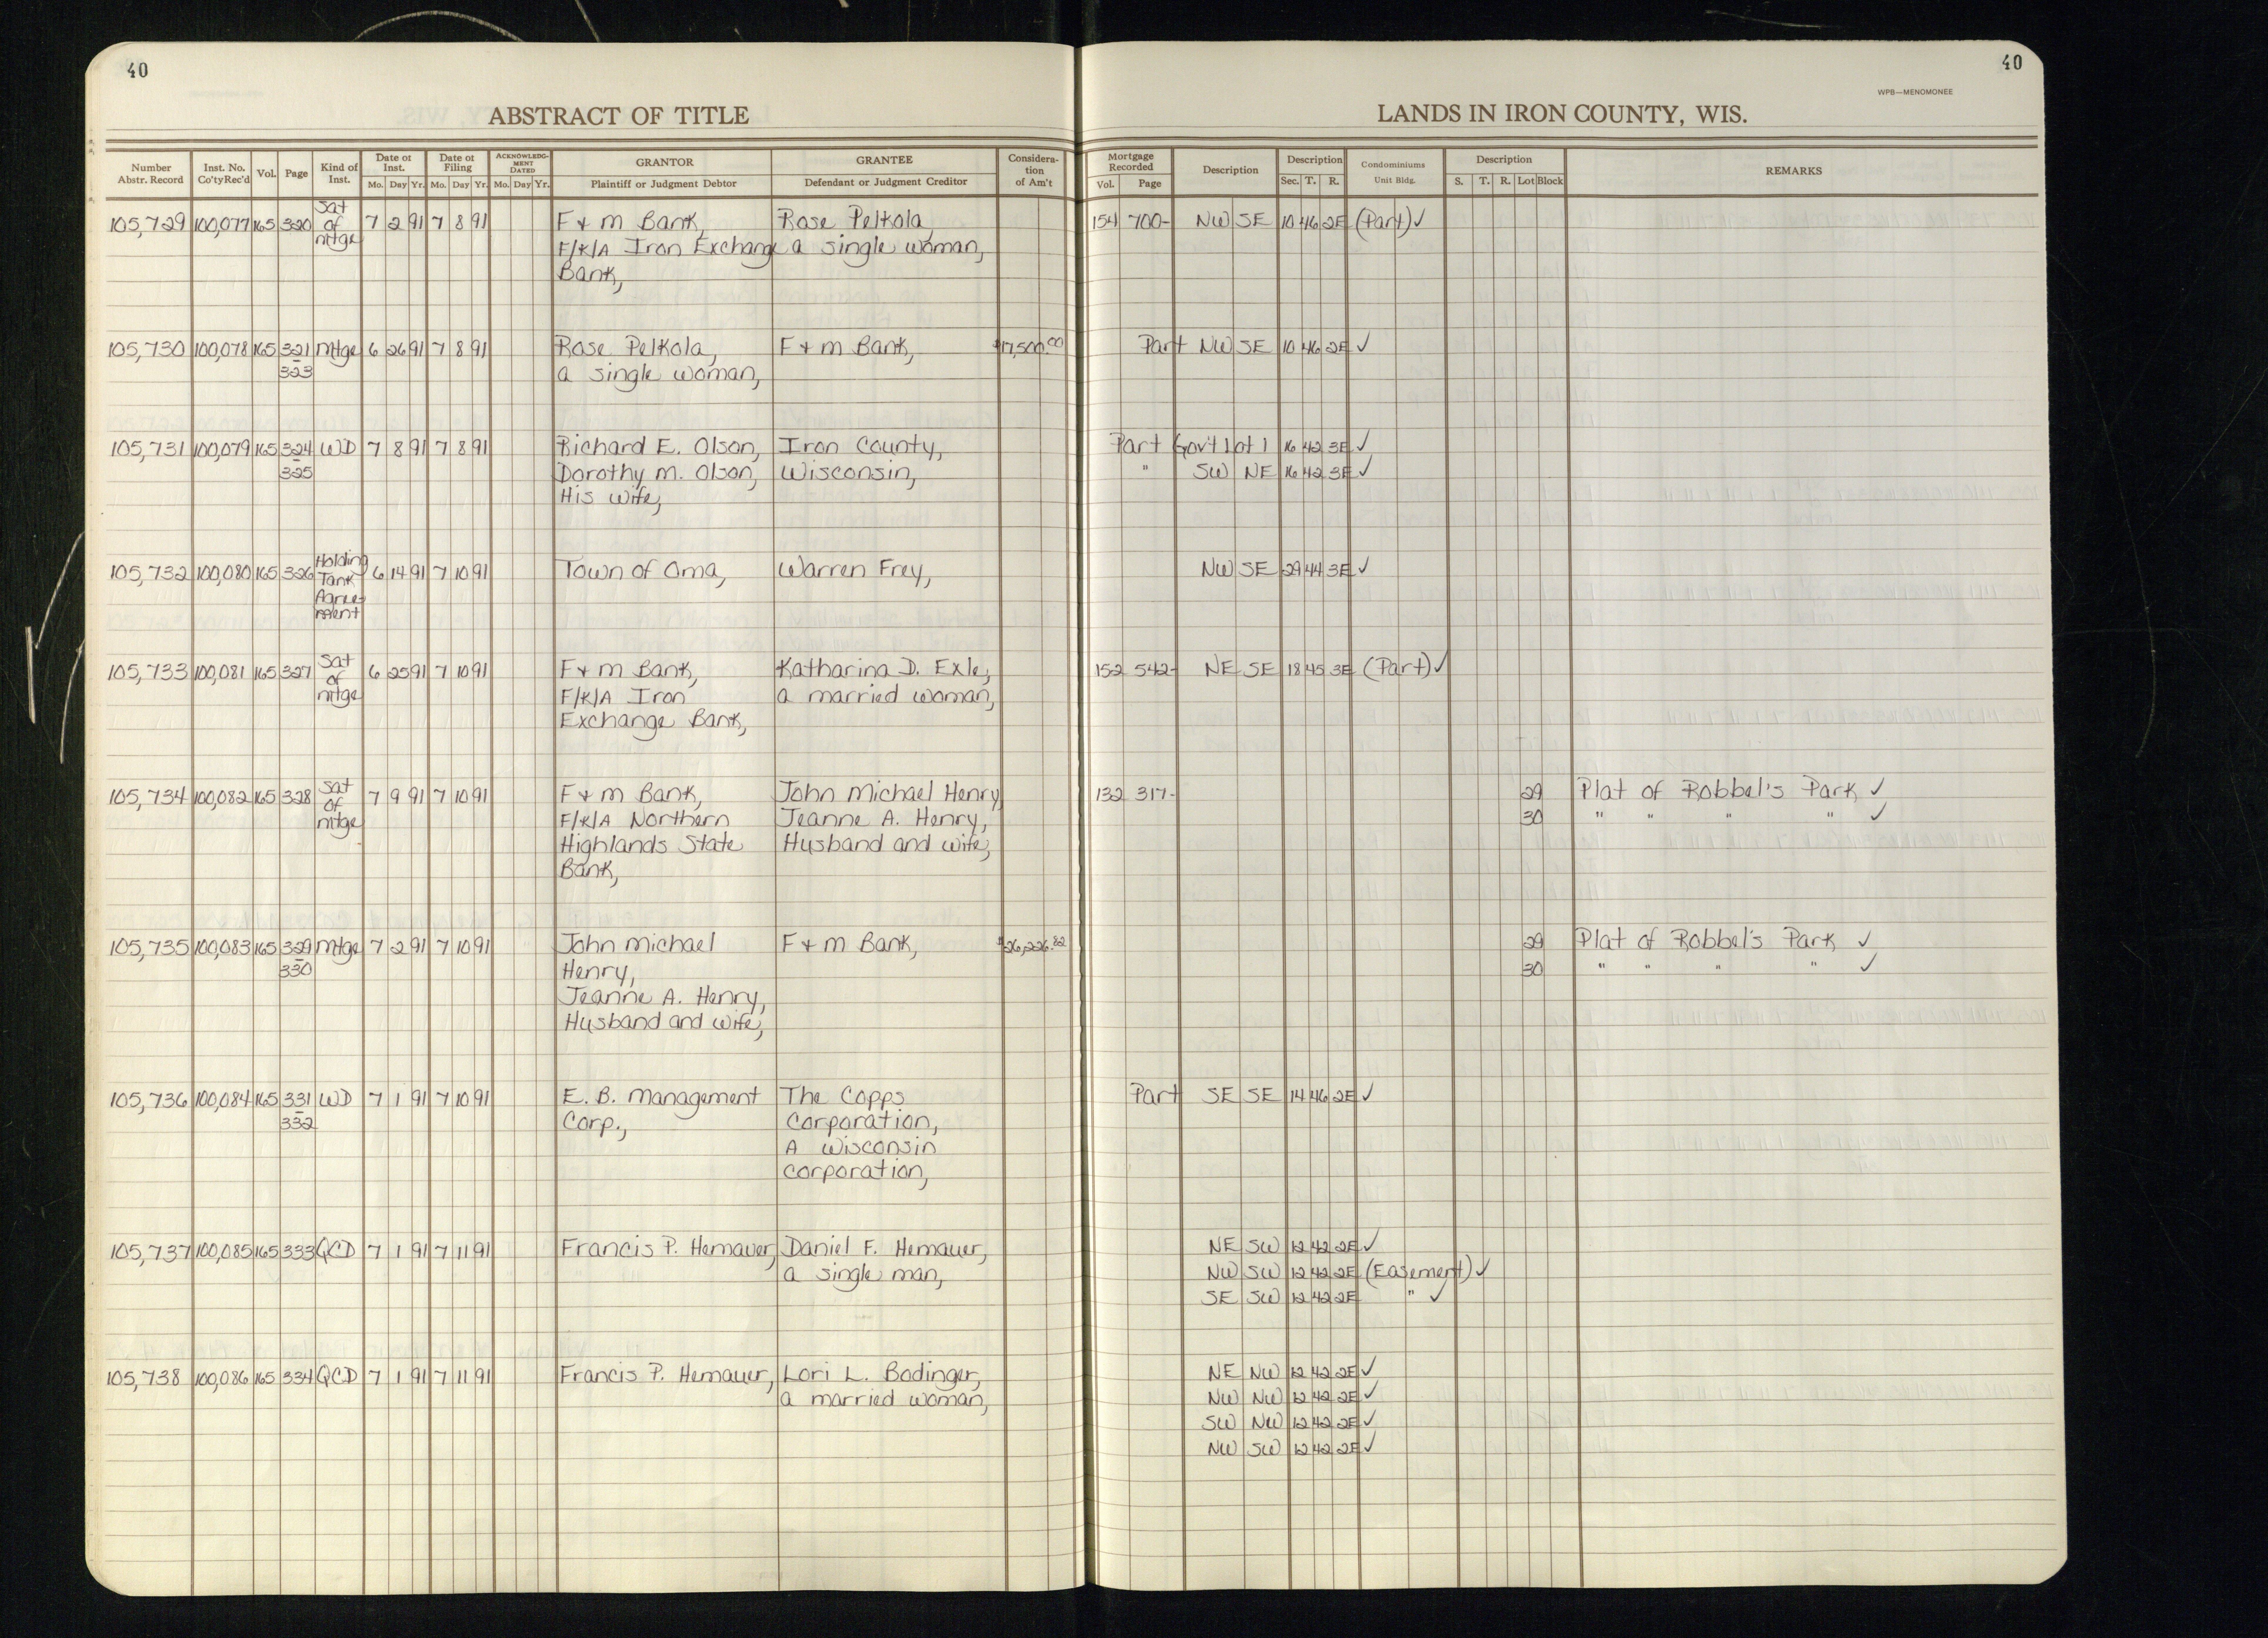 40
40
WPB—MENOMONEE
ABSTRACT OF TITLE
LANDS IN IRON COUNTY, WIS.
Number Abstr. Record | Inst. No. Co'ty Rec'd | Vol. | Page | Kind of Inst. | Date of Inst. Mo. Day Yr. | Date of Filing Mo. Day Yr. | ACKNOWLEDGMENT DATED Mo. Day Yr. | GRANTOR Plaintiff or Judgment Debtor | GRANTEE Defendant or Judgment Creditor | Consideration of Am't | Mortgage Recorded Vol. Page | Description | Description Sec. T. R. | Condominiums Unit Bldg. | Description S. T. R. Lot Block | REMARKS
105,729 100,077 165 320 Sat of mtge 7 2 91 7 8 91 F & M Bank, Rose Pelkola, 154 700- NW SE 10 46 2E (Part) ✓
F/K/A Iron Exchange a single woman,
Bank,
105,730 100,078 165 321 Mtge 6 26 91 7 8 91 Rose Pelkola, F & M Bank, $17,500.00 Part NW SE 10 46 2E ✓
323 a single woman,
105,731 100,079 165 324 WD 7 8 91 7 8 91 Richard E. Olson, Iron County, Part Gov't Lot 1 16 42 3E ✓
325 Dorothy M. Olson, Wisconsin, " SW NE 16 42 3E ✓
His wife,
105,732 100,080 165 326 Holding Tank Agreement 6 14 91 7 10 91 Town of Oma, Warren Frey, NW SE 29 44 3E ✓
105,733 100,081 165 327 Sat of mtge 6 25 91 7 10 91 F & M Bank, Katharina D. Exle, 152 542- NE SE 18 45 3E (Part) ✓
F/K/A Iron a married woman,
Exchange Bank,
105,734 100,082 165 328 Sat of mtge 7 9 91 7 10 91 F & M Bank, John Michael Henry 132 317- 29 Plat of Robbel's Park ✓
F/K/A Northern Jeanne A. Henry, 30 " " " " ✓
Highlands State Husband and wife,
Bank,
105,735 100,083 165 329 Mtge 7 2 91 7 10 91 John Michael F & M Bank, $26,226.82 29 Plat of Robbel's Park ✓
330 Henry, 30 " " " " ✓
Jeanne A. Henry,
Husband and wife,
105,736 100,084 165 331 WD 7 1 91 7 10 91 E. B. Management The Copps Part SE SE 14 46 2E ✓
332 Corp., Corporation,
A Wisconsin
corporation,
105,737 100,085 165 333 QCD 7 1 91 7 11 91 Francis P. Hemauer, Daniel F. Hemauer, NE SW 12 42 2E ✓
a single man, NW SW 12 42 2E (Easement) ✓
SE SW 12 42 2E " ✓
105,738 100,086 165 334 QCD 7 1 91 7 11 91 Francis P. Hemauer, Lori L. Bodinger, NE NW 12 42 2E ✓
a married woman, NW NW 12 42 2E ✓
SW NW 12 42 2E ✓
NW SW 12 42 2E ✓